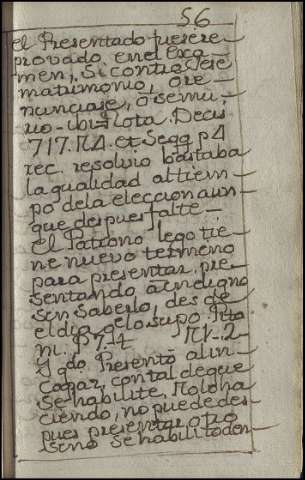 56
el Presentado fuere re-
provado en el exa-
men, Si contra[e]se
matrimonio, o re-
nunciase, o se mu-
rio - ubi Rota. Decis
717. N. 4. et Seqq p 4
rec. resolvio bastaba
la qualidad al tiem-
po de la eleccion aun-
que despues falte -
El Patrono lego tie-
ne nuevo termino
para presentar, pre-
sentando a indigno
sin saberlo, desde
el dia qe lo supo.
ni. P 7. 4 - N 1. 2 -
Y qdo Presento al in-
capaz, con tal de que
se habilite. No lo ha
ciendo, no puede des-
pues presentar otro
sino se habilito den-